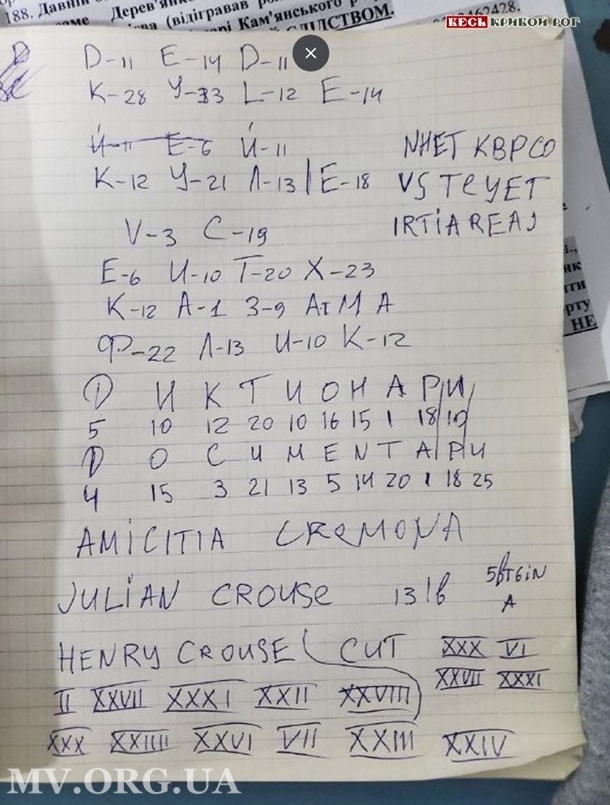 188. Давній
КЕСЬ КРИВОЙ РОГ
D-11 E-14 D-11
К-28 У-33 L-12 E-14
Й-11 Е-6 Й-11
NHET KBPCO
К-12 У-21 Л-13 | Е-18
VS TCYET
IRTIAREAJ
V-3 C-19
Е-6 И-10 Т-20 Х-23
К-12 А-1 З-9 Ат М А
Ф-22 Л-13 И-10 К-12
НЕ
D И К Т И О Н А Р И
5 10 12 20 10 16 15 1 18 10
D О С И М Е N Т А Р И
4 15 3 21 13 5 14 20 1 18 25
AMICITIA CREMONA
JULIAN CROUSE 13
A
HENRY CROUSE CUT
XXX VI
XXVII XXXI
II XXVII XXXI XXII XXVIII
XXX XXIIII XXVI VII XXIII XXIV
MV.ORG.UA